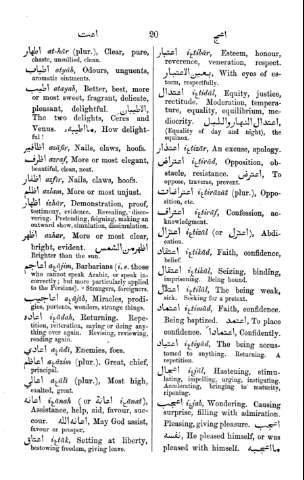 اعت 20 اعج
اطهار at-hār (plur.), Clear, pure,
chaste, unsullied, clean.
اطياب atyāb, Odours, unguents,
aromatic ointments.
اطيب atayab, Better, best, more
or most sweet, fragrant, delicate,
pleasant, delightful. الاطيبان
The two delights, Ceres and
Venus. ما اطيبه How delight-
ful!
اظافير Nails, claws, hoofs.
اظرف azraf, More or most elegant,
beautiful, clean, neat.
اظفار Nails, claws, hoofs.
اظلم azlam, More or most unjust.
اظهار izhār, Demonstration, proof,
testimony, evidence. Revealing, disco-
vering. Pretending, feigning, making an
outward show, simulation, dissimulation.
اظهر azhar, More or most clear,
bright, evident. اظهر من الشمس
Brighter than the sun.
اعاجم Barbarians (i. e. those
who cannot speak Arabic, or speak in-
correctly; but more particularly applied
to the Persians). Strangers, foreigners.
اعاجيب Miracles, prodi-
gies, portents, wonders, strange things.
اعادة Returning. Repe-
tition, reiteration, saying or doing any-
thing over again. Reviewing, renewing,
reading again.
اعادي Enemies, foes.
اعاظم (plur.), Great, chief,
principal.
اعالي (plur.), Most high,
exalted, great.
اعانة (or اعانت)
Assistance, help, aid, favour, suc-
cour. اعانه الله May God assist,
favour or prosper.
اعتاق Setting at liberty,
bestowing freedom, giving leave.
اعتبار Esteem, honour,
reverence, veneration, respect.
بعين الاعتبار With eyes of es-
teem, respectfully.
اعتدال Equity, justice,
rectitude. Moderation, tempera-
ture, equality, equilibrium, me-
diocrity. اعتدال النهار والليل
(Equality of day and night), the
equinox.
اعتذار An excuse, apology.
اعتراض Opposition, ob-
stacle, resistance. To
suppose, traverse, prevent.
اعتراضات (plur.), Oppo-
sition, etc.
اعتراف Confession, ac-
knowledgment.
اعتزال (or اعتزل), Abdi-
cation.
اعتقاد Faith, confidence,
belief.
اعتقال Seizing, binding,
imprisoning. Being bound.
اعتلال The being weak,
sick. Seeking for a pretext.
اعتماد Faith, confidence.
Being baptized. To place
confidence. اعتمادا Confidently.
اعتياد The being accus-
tomed to anything. Returning. A
repetition.
اعجال Hastening, stimu-
lating, impelling, urging, instigating.
Accelerating, bringing to maturity,
ripening.
اعجاب Wondering. Causing
surprise, filling with admiration.
Pleasing, giving pleasure.
نفسه He pleased himself, or was
pleased with himself.